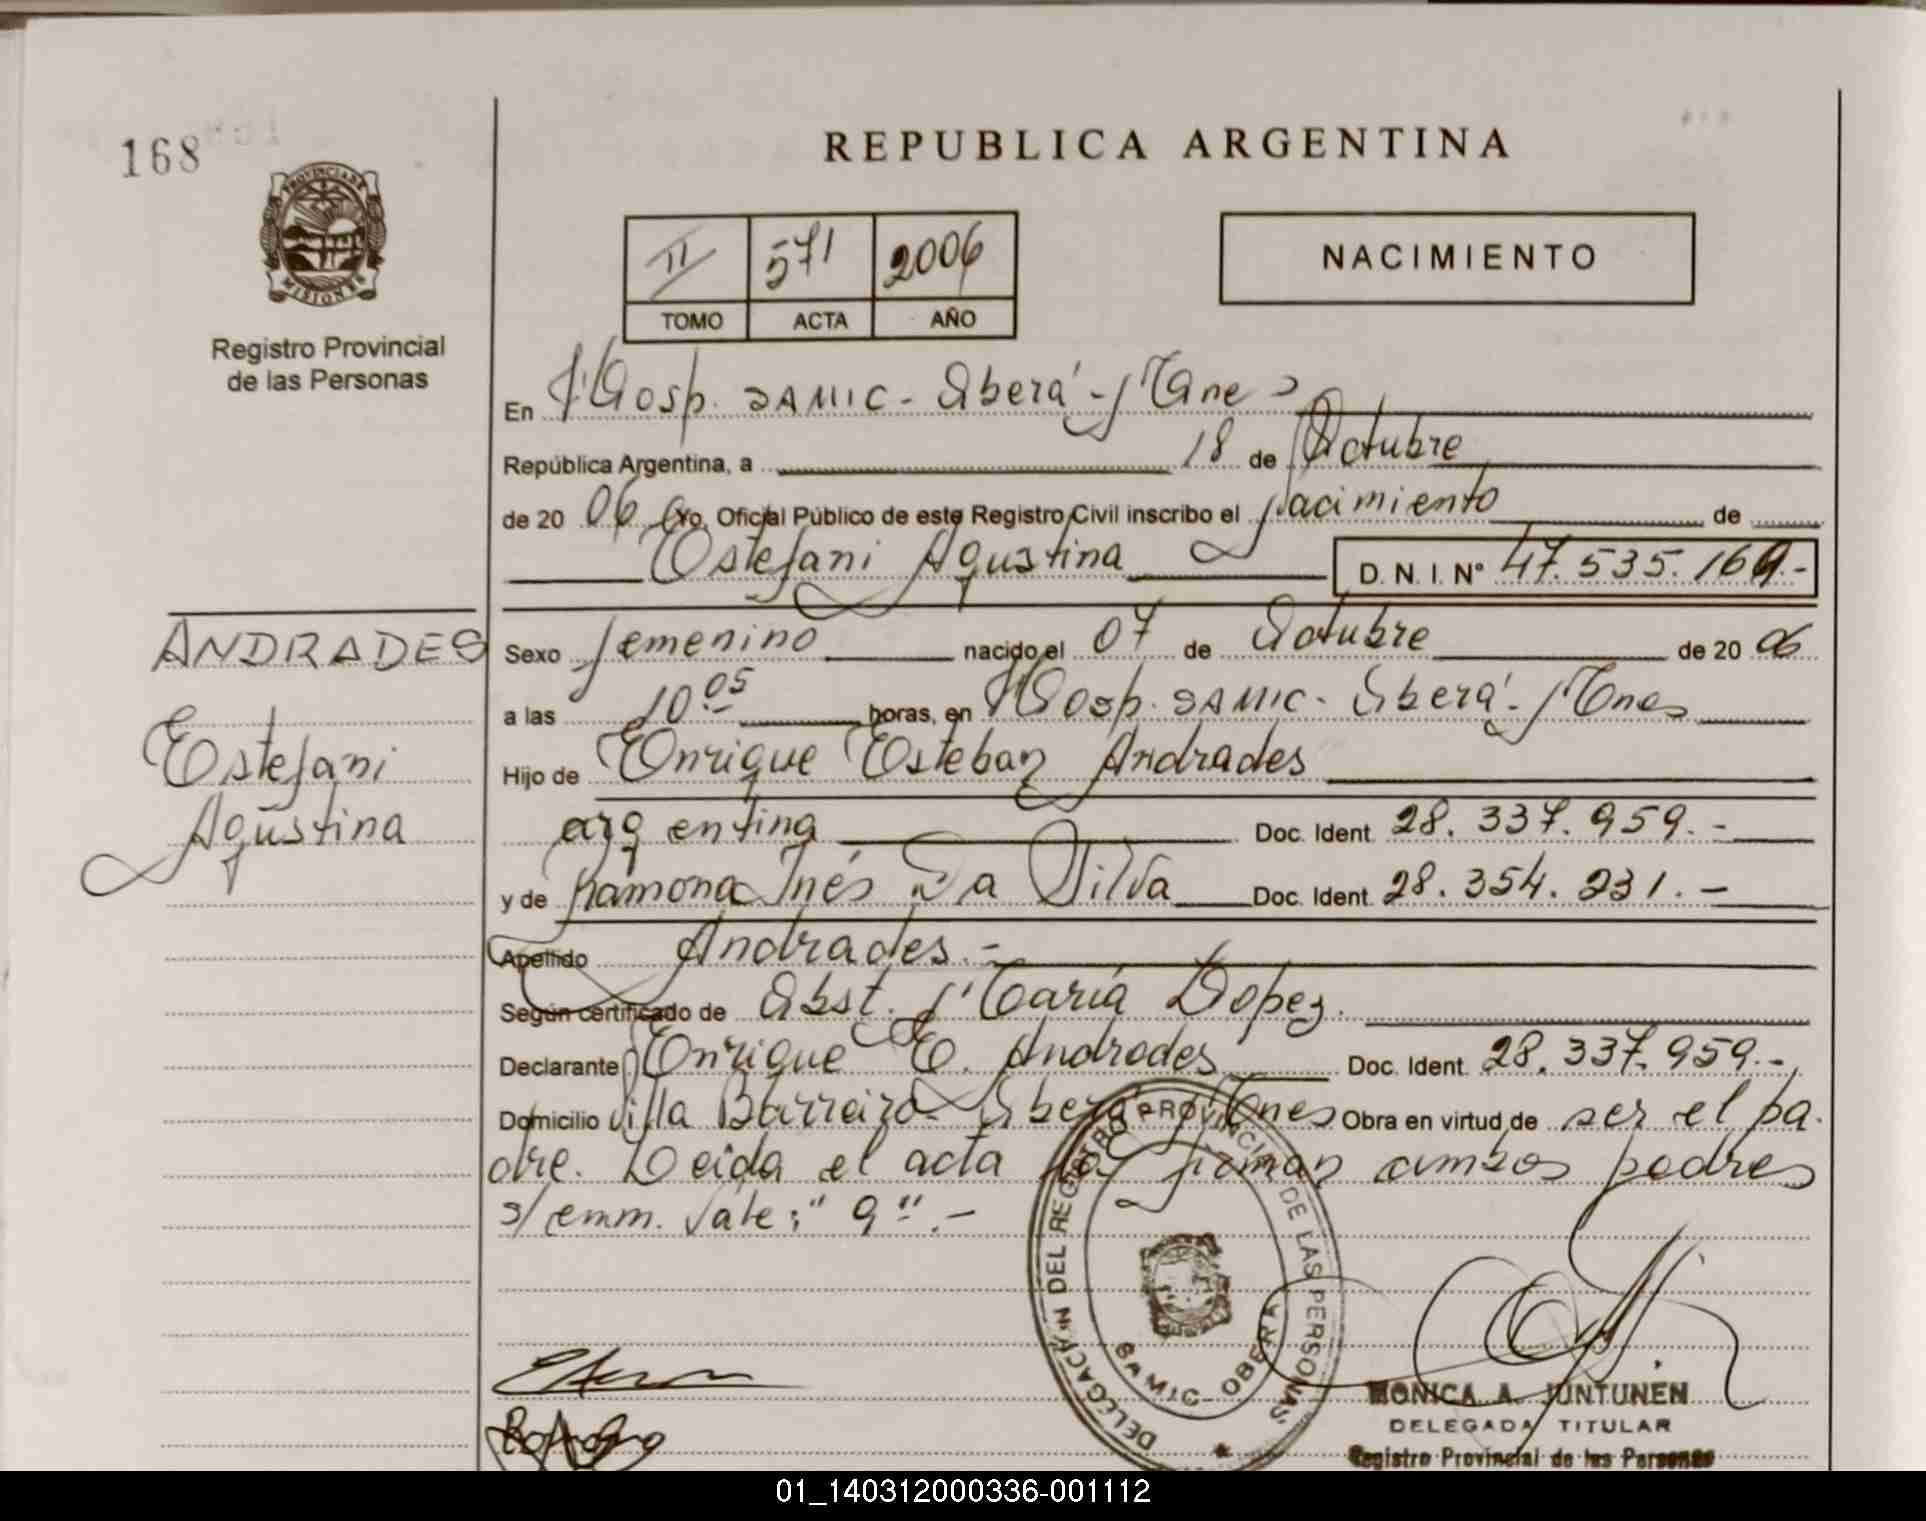 168
REPUBLICA ARGENTINA
PROVINCIA DE
MISIONES
Registro Provincial
de las Personas
II 571 2006
TOMO ACTA AÑO
NACIMIENTO
En Hosp. SAMIC - Oberá - Mnes
República Argentina, a 18 de Octubre
de 20 06 Yo, Oficial Público de este Registro Civil inscribo el Nacimiento de
Estefani Agustina D. N. I. Nº 47.535.169.-
ANDRADES
Estefani
Agustina
Sexo femenino nacido el 07 de Octubre de 20 06
a las 10 05 horas, en Hosp. SAMIC - Oberá - Mnes
Hijo de Enrique Esteban Andrades
argentina Doc. Ident. 28.337.959.-
y de Ramona Inés Da Silva Doc. Ident. 28.354.231.-
Apellido Andrades.-
Según certificado de Obst. María Lopez.
Declarante Enrique E. Andrades Doc. Ident. 28.337.959.-
Domicilio Villa Barreiro - Oberá - Mnes Obra en virtud de ser el pa-
dre. Leida el acta la firman ambos padres
s/ emm. Vale: "9".-
DELEGACION DEL REGISTRO PROVINCIAL DE LAS PERSONAS
SAMIC - OBERA
MONICA A. JUNTUNEN
DELEGADA TITULAR
Registro Provincial de las Personas
01_140312000336-001112